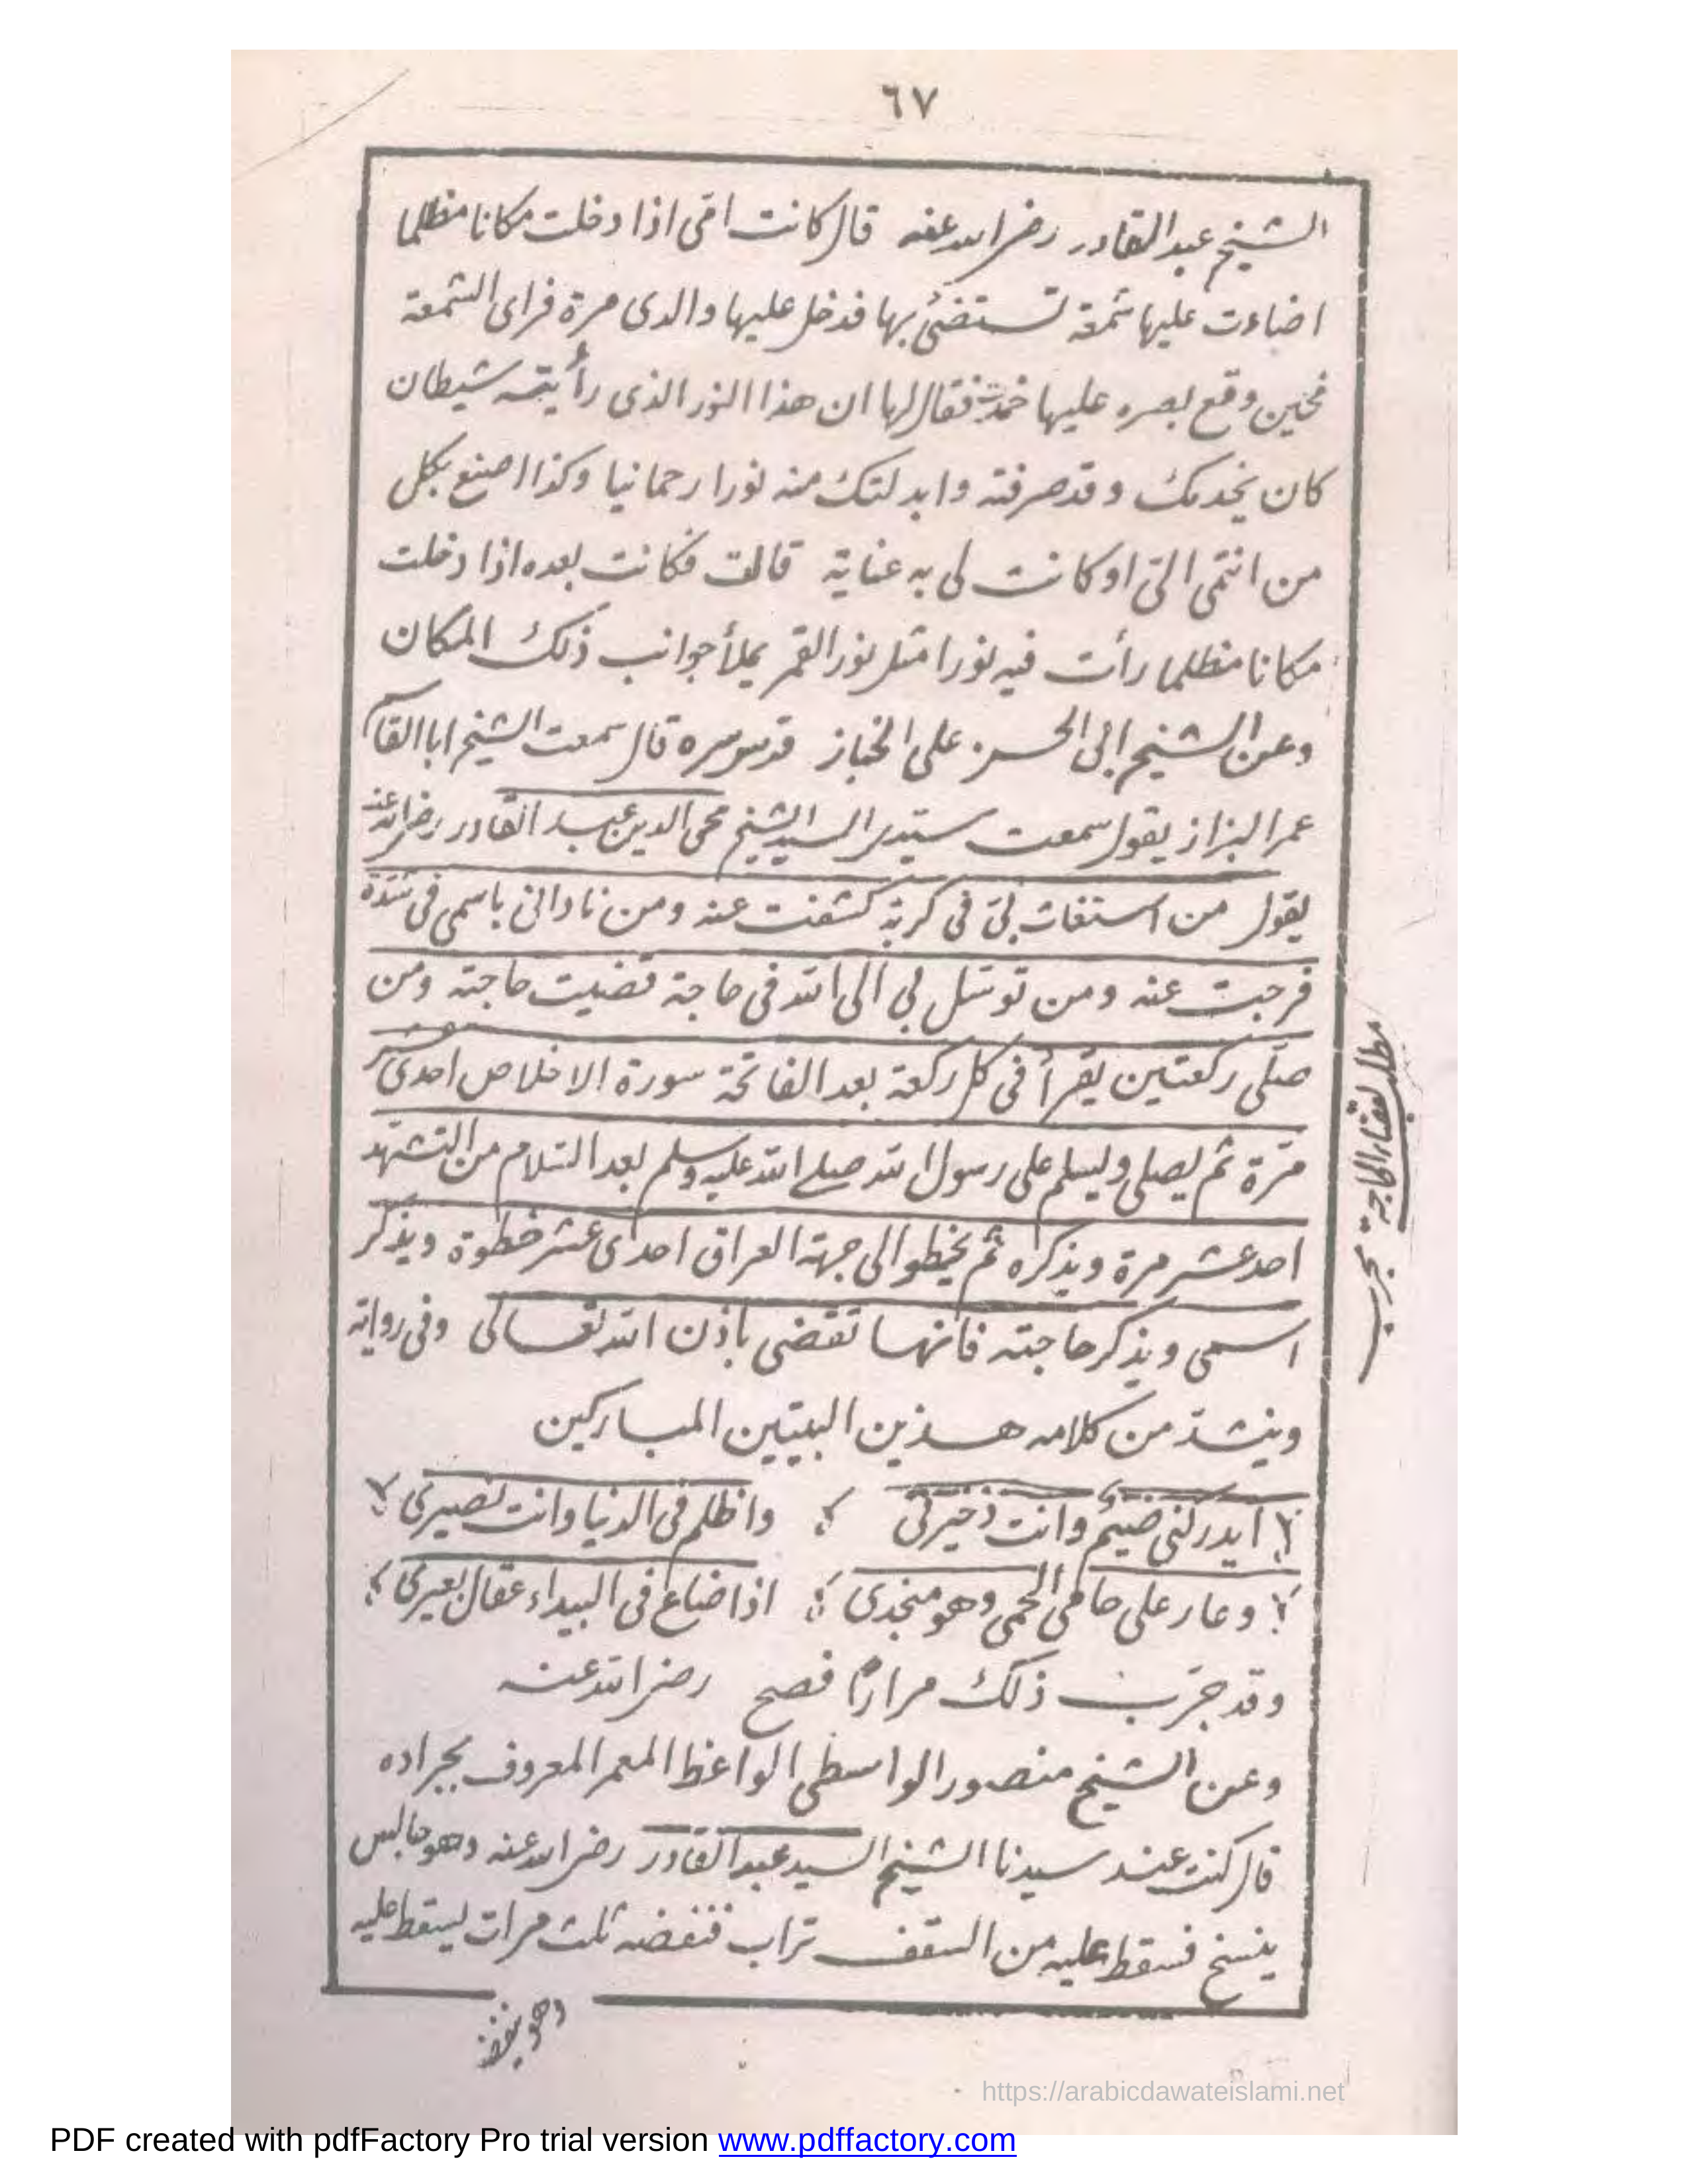 ٦٧
الشيخ عبد القادر رضى الله عنه قال كانت امّى اذا دخلت مكانا مظلما
اضاءت عليها شمعة تستضئ بها فدخل عليها والدى مرة فراى الشمعة
فحين وقع بصره عليها خمدت فقال لها ان هذا النور الذى رأيته شيطان
كان يخدمك وقد صرفته وابدلتك منه نورا رحمانيا وكذا اصنع بكل
من انتمى الىّ او كانت لى به عناية قالت فكانت بعده اذا دخلت
مكانا مظلما رأت فيه نورا مثل نور القمر يملأ جوانب ذلك المكان
وعن الشيخ ابى الحسن على الخباز قدس سره قال سمعت الشيخ ابا القاسم
عمر البزاز يقول سمعت سيّدى السيد الشيخ محى الدين عبد القادر رضى الله عنه
يقول من استغاث بى فى كربة كشفت عنه ومن نادانى باسمى فى شدّة
فرجت عنه ومن توسّل بى الى الله فى حاجة قضيت حاجته ومن
صلّى ركعتين يقرأ فى كل ركعة بعد الفاتحة سورة الاخلاص احدى عشر
مرّة ثم يصلى ويسلم على رسول الله صلى الله عليه وسلم بعد السّلام من التشهّد
احد عشر مرة ويذكره ثم يخطو الى جهة العراق احدى عشر خطوة ويذكر
اسمى ويذكر حاجته فانها تقضى باذن الله تعالى وفى رواية
وينشد من كلامه هذين البيتين المباركين
ايدركنى ضيم وانت ذخيرتى واظلم فى الدنيا وانت نصيرى
وعار على حامى الحمى وهو منجدى اذا ضاع فى البيداء عقال بعيرى
وقد جرّب ذلك مرارًا فصح رضى الله عنه
وعن الشيخ منصور الواسطى الواعظ المعمر المعروف بجراده
قال كنت عند سيدنا الشيخ السيد عبد القادر رضى الله عنه وهو جالس
ينسخ فسقط عليه من السّقف تراب فنفضه ثلث مرات ليسقط عليه
وهو ينفض
مطلب لقضاء الحاجة مجرب
https://arabicdawateislami.net
PDF created with pdfFactory Pro trial version www.pdffactory.com